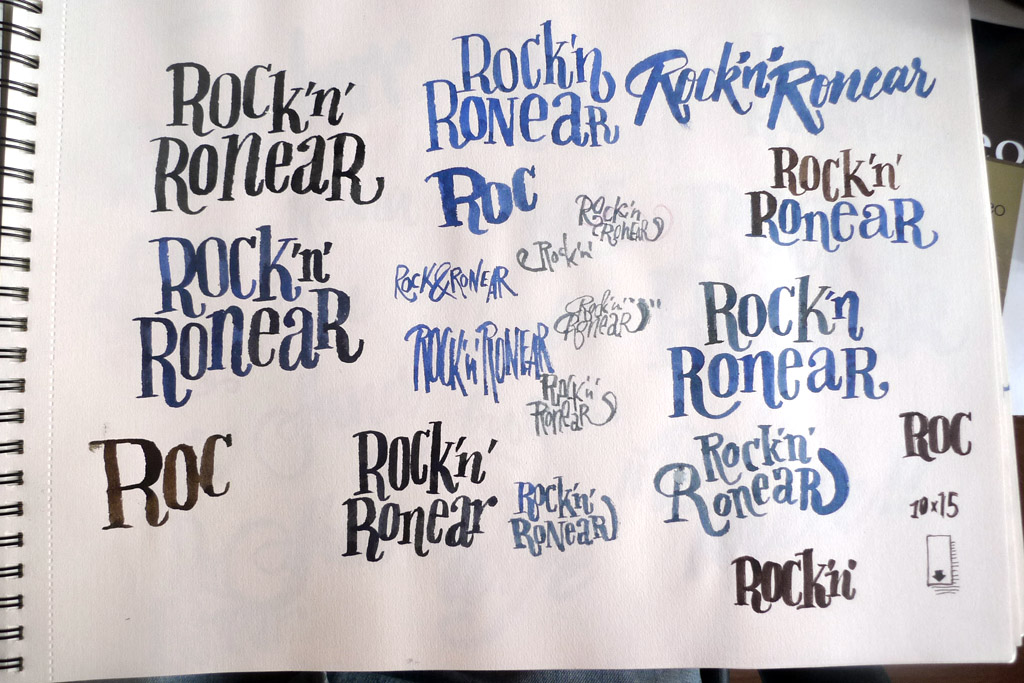 Rock'n'
Ronear
Rock'n
Ronear
Rock'n'Ronear
Roc
Rock'n
Ronear
Rock'n'
Rock'n'
Ronear
Rock'n'
Ronear
Rock&Ronear
Rock'n'
Ronear
Rock'n
Ronear
Rock'n'Ronear
Rock'n'
Ronear
Roc
Rock'n'
Ronear
Rock'n'
Ronear
Rock'n'
Ronear
Roc
10x15
Rock'n'